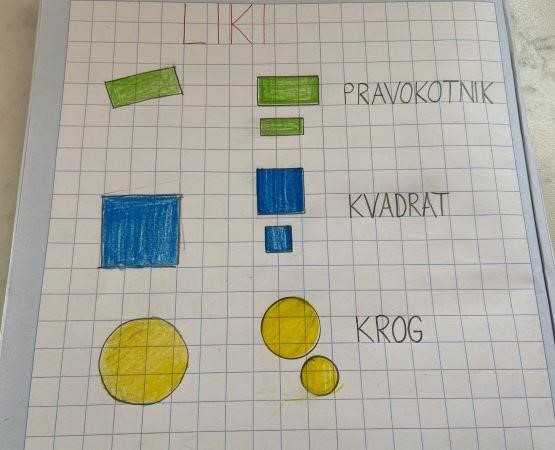 LIKI
PRAVOKOTNIK
KVADRAT
KROG